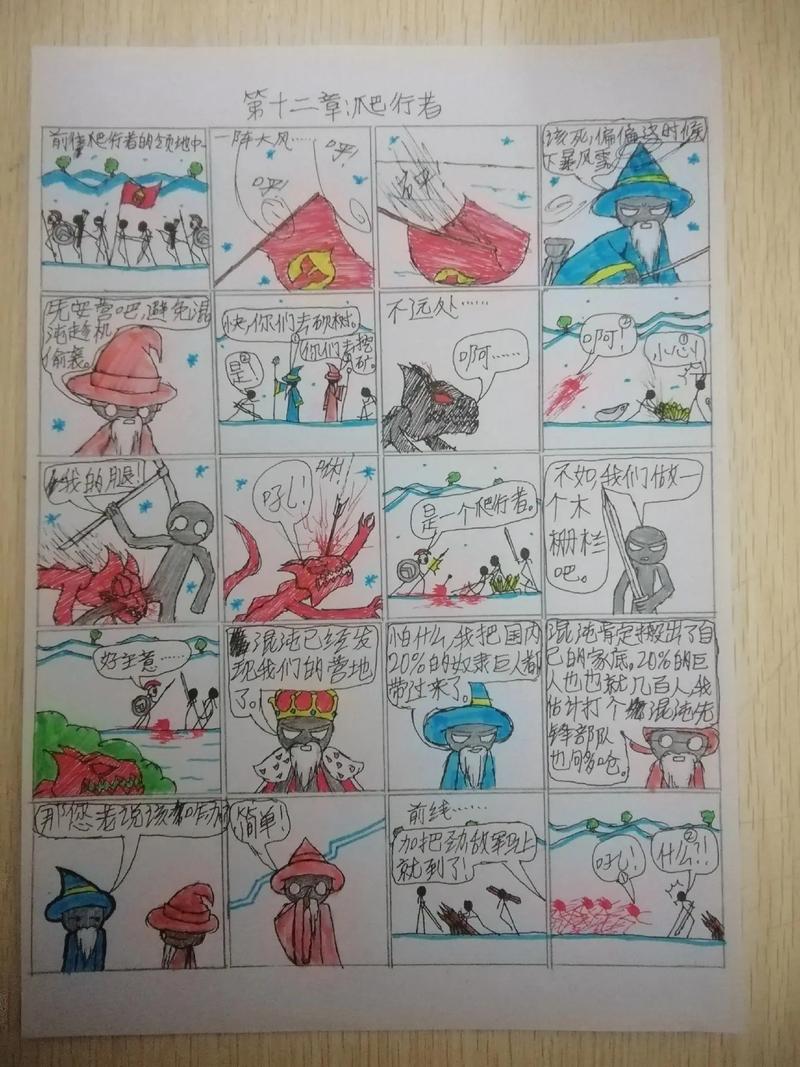 第十二章:爬行者
前往爬行者的领地中..
一阵大风……
呼!
呼!
该死,偏偏这时候
下暴风雪。
先安营吧,避免混
沌趁机
偷袭。
快,你们去砍树。
①你们去挖
矿。
②是!
不远处……
啊……
②啊!
小心!①
我的腿!
咻!
吼!
是一个爬行者。
不如,我们做一
个木
栅栏
吧。
好主意……
混沌已经发
现我们的营地
了。
怕什么,我把国内
20%的奴隶巨人都
带过来了。
混沌肯定搬出了自
己的家底。20%的巨
人也也就几百人,我
估计打个混沌先
锋部队
也够呛。
那您老说该咋办
简单!
前线……
加把劲敌军马上
就到了!
吼!
①
②
什么?!